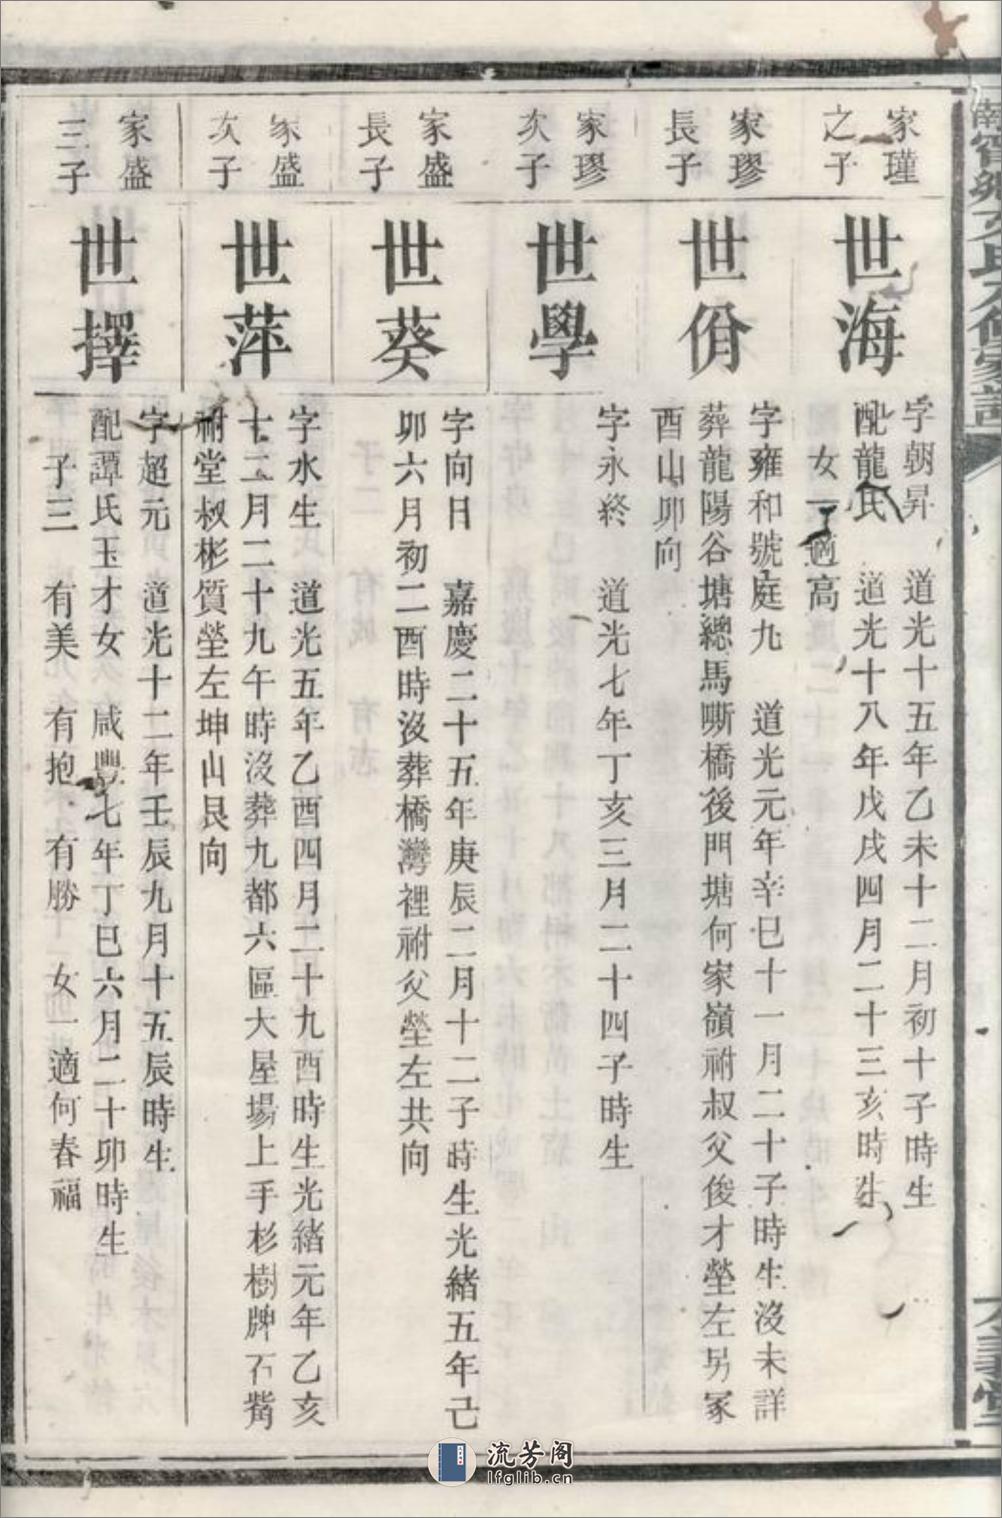 家瑾
之子
世海
字朝昇　道光十五年乙未十二月初十子時生
配龍氏　道光十八年戊戌四月二十三亥時生
女一適高
家璆
長子
世佾
字雍和號庭九　道光元年辛巳十一月二十子時生沒未詳
葬龍陽谷塘總馬嘶橋後門塘何家嶺祔叔父俊才塋左另冢
酉山卯向
家璆
次子
世學
字永終　道光七年丁亥三月二十四子時生
家盛
長子
世葵
字向日　嘉慶二十五年庚辰二月十二子時生光緒五年己
卯六月初二酉時沒葬橋灣裡祔父塋左共向
家盛
次子
世萍
字水生　道光五年乙酉四月二十九酉時生光緒元年乙亥
十二月二十九午時沒葬九都六區大屋場上手杉樹牌石觜
祔堂叔彬質塋左坤山艮向
家盛
三子
世擇
字超元　道光十二年壬辰九月十五辰時生
配譚氏玉才女　咸豐七年丁巳六月二十卯時生
子三　有美　有抱　有勝　女一適何春福
流芳阁
lfglib.cn